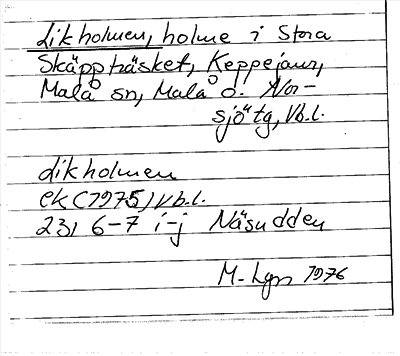 Likholmen, holme i Stora
Skäppträsket, Keppejaur,
Malå sn, Malå o. Nor-
sjö tg, Vb.l.
Likholmen
ek (1975) Vb.l.
23I 6-7 i-j Näsudden
M. Lgn 1976